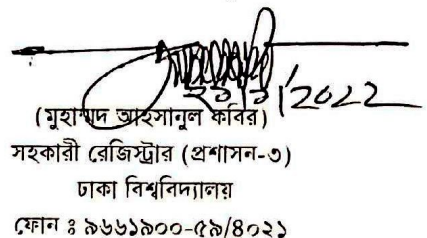 /2022
(মুহাম্মদ আহসানুল কবির)
সহকারী রেজিস্ট্রার (প্রশাসন-৩)
ঢাকা বিশ্ববিদ্যালয়
ফোন ঃ ৯৬৬১৯০০-৫৯/৪০২১